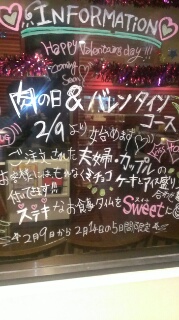 INFORMATION
Happy Valentains day!!!
Coming Soon
肉の日&バレンタイン
コース
2/9より始めます
ご注文された夫婦・カップルの
お客様には
チョコケーキとアイス盛り合わせ
付いてきます!!
ステキなお食事タイムをSweetに
スイート
*2月9日から2月14日の5日間限定*